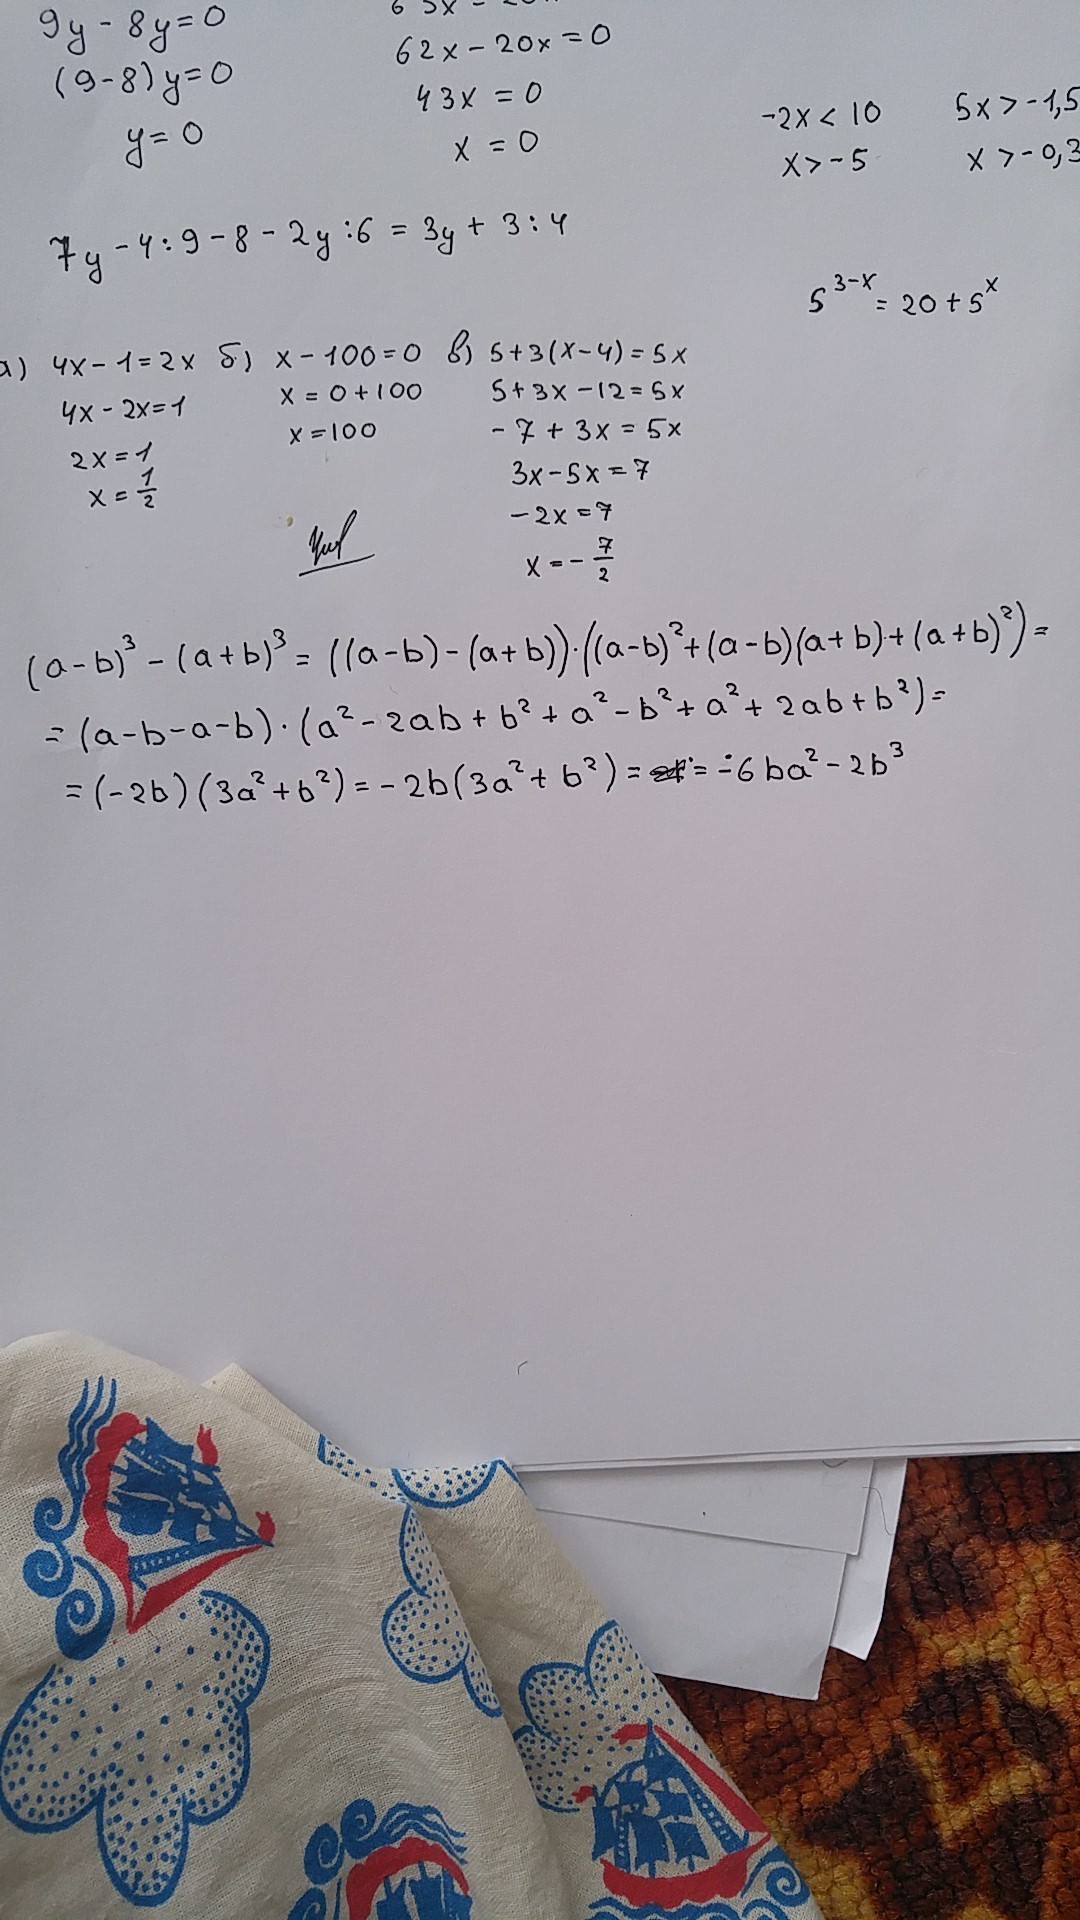 9y - 8y = 0
(9-8)y = 0
y = 0
62x - 20x = 0
43x = 0
x = 0
-2x < 10
x > -5
5x > -1,5
x > -0,3
7y - 4 : 9 - 8 - 2y : 6 = 3y + 3 : 4
5^{3-x} = 20 + 5^x
а) 4x - 1 = 2x
4x - 2x = 1
2x = 1
x = \frac{1}{2}
б) x - 100 = 0
x = 0 + 100
x = 100
в) 5 + 3(x - 4) = 5x
5 + 3x - 12 = 5x
-7 + 3x = 5x
3x - 5x = 7
-2x = 7
x = -\frac{7}{2}
(a-b)³ - (a+b)³ = ((a-b) - (a+b))·((a-b)² + (a-b)(a+b) + (a+b)²) =
= (a-b-a-b)·(a² - 2ab + b² + a² - b² + a² + 2ab + b²) =
= (-2b)(3a² + b²) = -2b(3a² + b²) = = -6ba² - 2b³